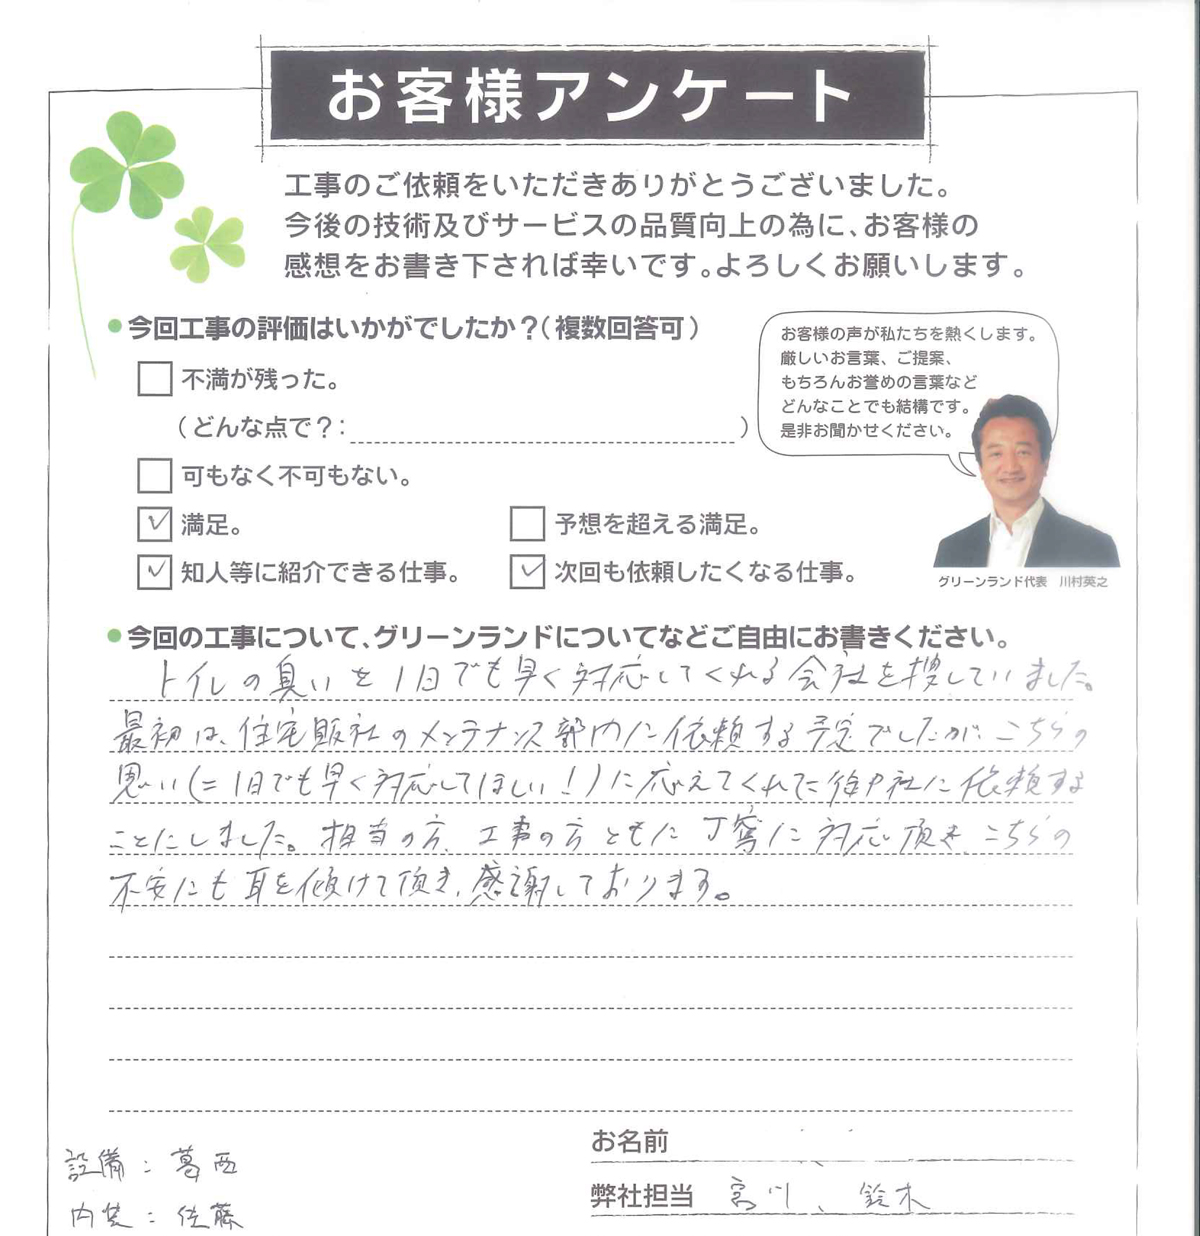 お客様アンケート
工事のご依頼をいただきありがとうございました。
今後の技術及びサービスの品質向上の為に、お客様の
感想をお書き下されば幸いです。よろしくお願いします。
●今回工事の評価はいかがでしたか？（複数回答可）
不満が残った。
（どんな点で？：　）
可もなく不可もない。
満足。
予想を超える満足。
知人等に紹介できる仕事。
次回も依頼したくなる仕事。
お客様の声が私たちを熱くします。
厳しいお言葉、ご提案、
もちろんお誉めの言葉など
どんなことでも結構です。
是非お聞かせください。
グリーンランド代表　川村英之
●今回の工事について、グリーンランドについてなどご自由にお書きください。
トイレの臭いを1日でも早く対応してくれる会社を捜していました。
最初は、住宅販社のメンテナンス部内に依頼する予定でしたが、こちらの
思い(=1日でも早く対応してほしい！)に応えてくれた御社に依頼する
ことにしました。担当の方、工事の方ともに丁寧に対応頂き、こちらの
不安にも耳を傾けて頂き、感謝しております。
お名前
弊社担当　宮川、鈴木
設備：葛西
内装：佐藤